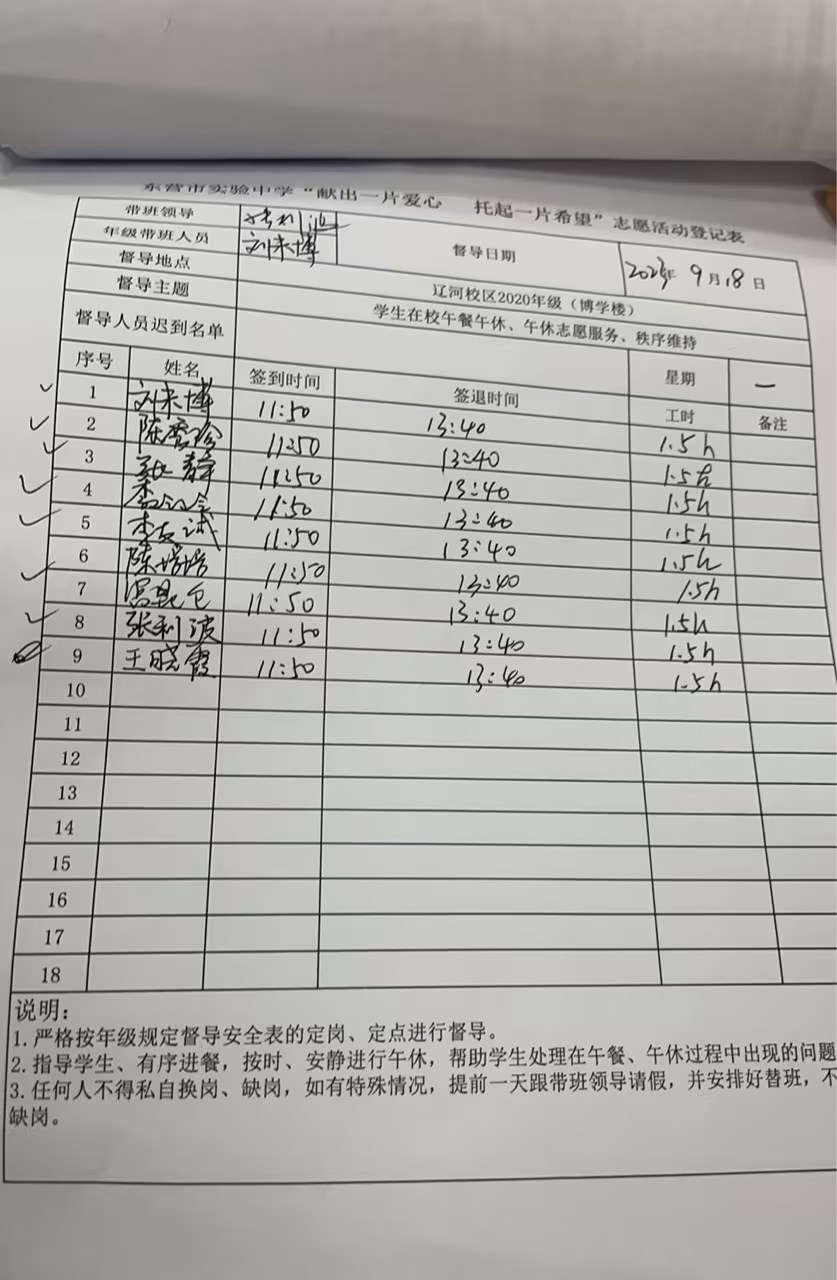 东营市实验中学“献出一片爱心 托起一片希望”志愿活动登记表
带班领导 张利波
年级带班人员 刘来博 督导日期 2023年 9月18日
督导地点 辽河校区2020年级（博学楼）
督导主题 学生在校午餐午休、午休志愿服务、秩序维持
督导人员迟到名单 星期 一
序号 姓名 签到时间 签退时间 工时 备注
1 刘来博 11:50 13:40 1.5h
2 陈 11:50 13:40 1.5h
3 静 11:50 13:40 1.5h
4 11:50 13:40 1.5h
5 李 试 11:50 13:40 1.5h
6 陈培培 11:50 13:40 1.5h
7 11:50 13:40 1.5h
8 张利波 11:50 13:40 1.5h
9 王晓霞 11:50 13:40 1.5h
10
11
12
13
14
15
16
17
18
说明：
1. 严格按年级规定督导安全表的定岗、定点进行督导。
2. 指导学生、有序进餐，按时、安静进行午休，帮助学生处理在午餐、午休过程中出现的问题
3. 任何人不得私自换岗、缺岗，如有特殊情况，提前一天跟带班领导请假，并安排好替班，不
缺岗。